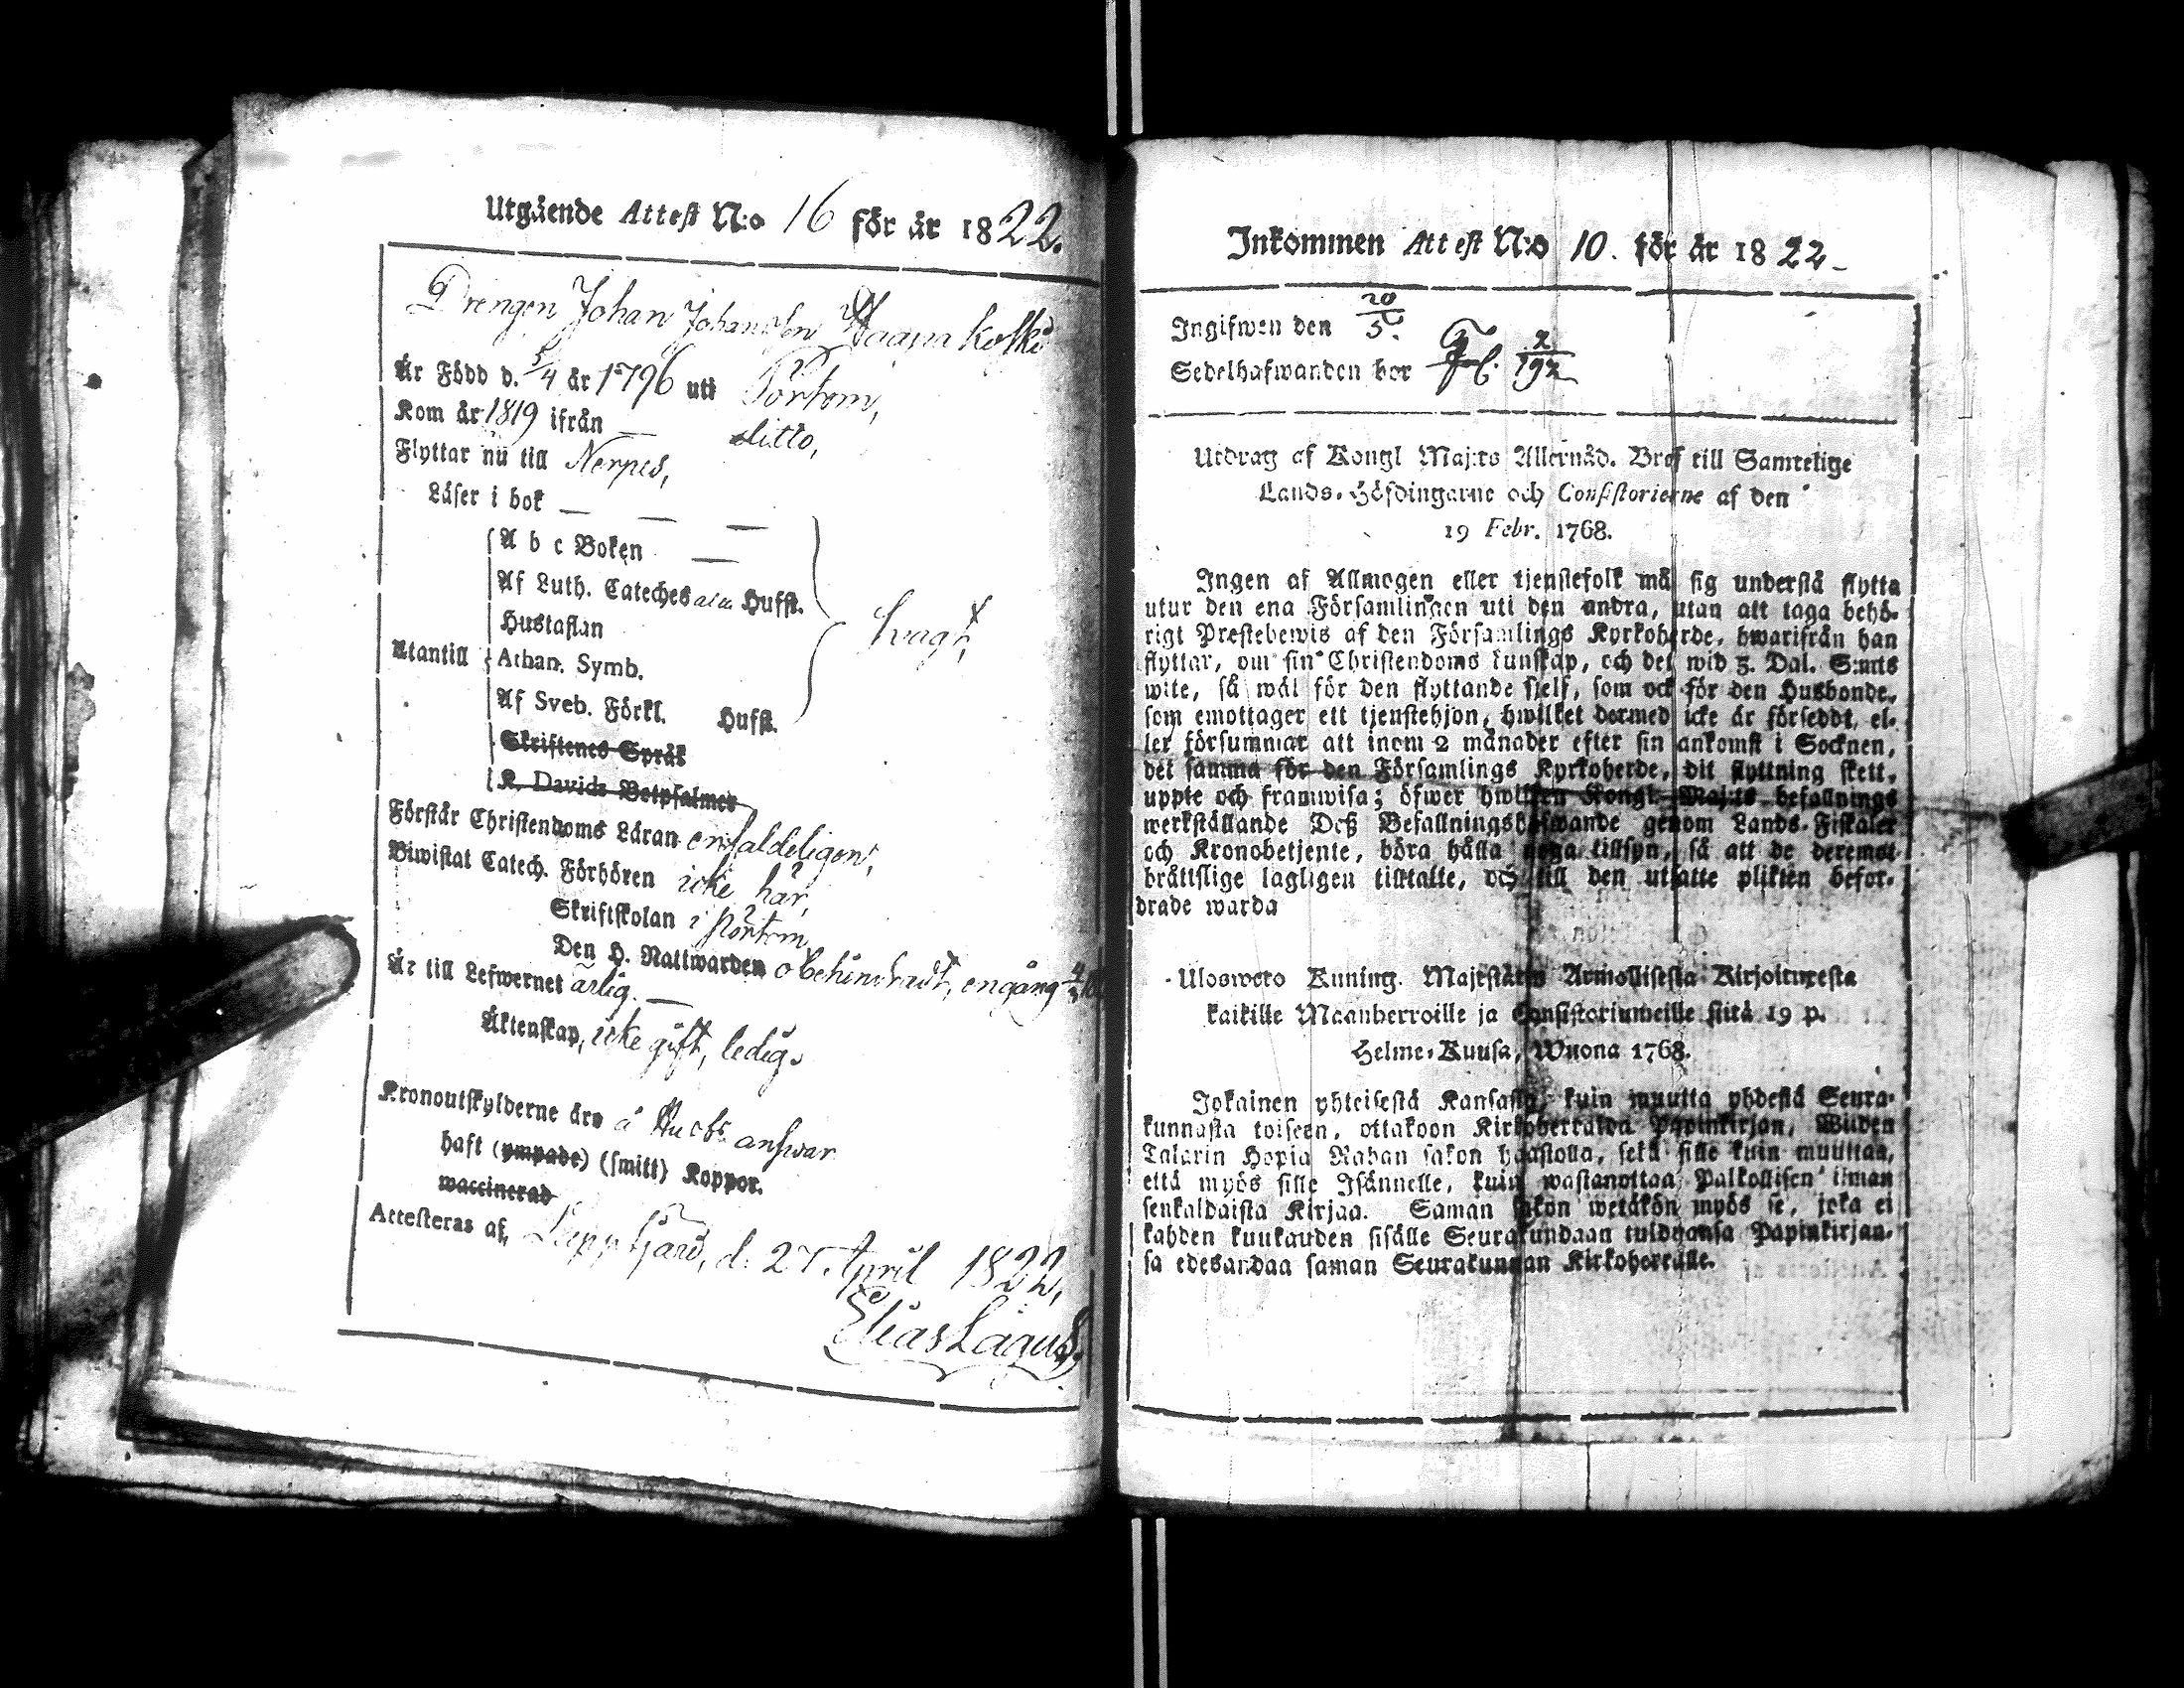 Utgående Attest N:o 16 för år 1822.
Drengen Johan Johansson
Är Född d. 5/4 år 1796 uti Pörtom,
Kom år 1819 ifrån — ditto,
Flyttar nu till Nerpes,
Läser i bok — — —
A b c Boken —
Af Luth. Cateches Husst.
Hustaflan
svagt,
Utantill Athan. Symb.
Af Sveb. Förkl. Husst.
Skriftenes Språk
K. Davids Botpsalmer
Förstår Christendoms Läran enfaldeligen,
Biwistat Catech. Förhören icke här,
Skriftskolan i Pörtom,
Den H. Nattwarden obehindradt, engång
Är till Lefwernet ärlig. —
Äktenskap, icke gift, ledig.
Kronoutskylderne äro å answar
haft (ympade) (smitt) Koppor.
waccinerad
Attesteras af, Lappfjärd, d. 27 April 1822,
Elias Lagus.
Inkommen Attest N:o 10. för år 1822
Ingifwen den 20/5.
Sedelhafwanden bor 2/192
Utdrag af Kongl Maj:ts Allernåd. Bref till Samtelige
Lands-Höfdingarne och Consistorierne af den
19 Febr. 1768.
Ingen af Allmogen eller tjenstefolk må sig understå flytta
utur den ena Församlingen uti den andra, utan att taga behö-
rigt Prestebewis af den Församlings Kyrkoherde, hwarifrån han
flyttar, om sin Christendoms kunskap, och det wid 3. Dal. S:mts
wite, så wäl för den flyttande sjelf, som ock för den Husbonde,
som emottager ett tjenstehjon, hwilket dermed icke är försedt, el-
ler försummar att inom 2 månader efter sin ankomst i Socknen,
det samma för den Församlings Kyrkoherde, dit flyttning skett,
uppte och framwisa; öfwer hwilken Kongl Maj:ts befallnings
werkställande Deß Befallningshafwande genom Lands-Fiskaler
och Kronobetjente, böra hålla noga tillsyn, så att de deremot
bråttslige lagligen tilltalte, och till den utsatte plikten befor-
drade warda
Ulosweto Kuning. Majestätin Armollisesta Kirjoituresta
kaikille Maanherroille ja Consistoriumeille siitä 19 p.
Helme-Kuusa, Wuona 1768.
Jokainen yhteisestä Kansasta, kuin muutta yhdestä Seura-
kunnasta toiseen, ottakoon Kirkoherralda Papinkirjan, Wiiden
Talarin Hopia Rahan sakon haastolla, sekä sille kuin muuttaa,
että myös sille Isännelle, kuin wastanottaa Palkollisen ilman
senkaldaista Kirjaa. Saman sakon wetäkön myös se, joka ei
kahden kuukauden sisälle Seurakundaan tulduansa Papinkirjan-
sa edesandaa saman Seurakunnan Kirkoherralle.